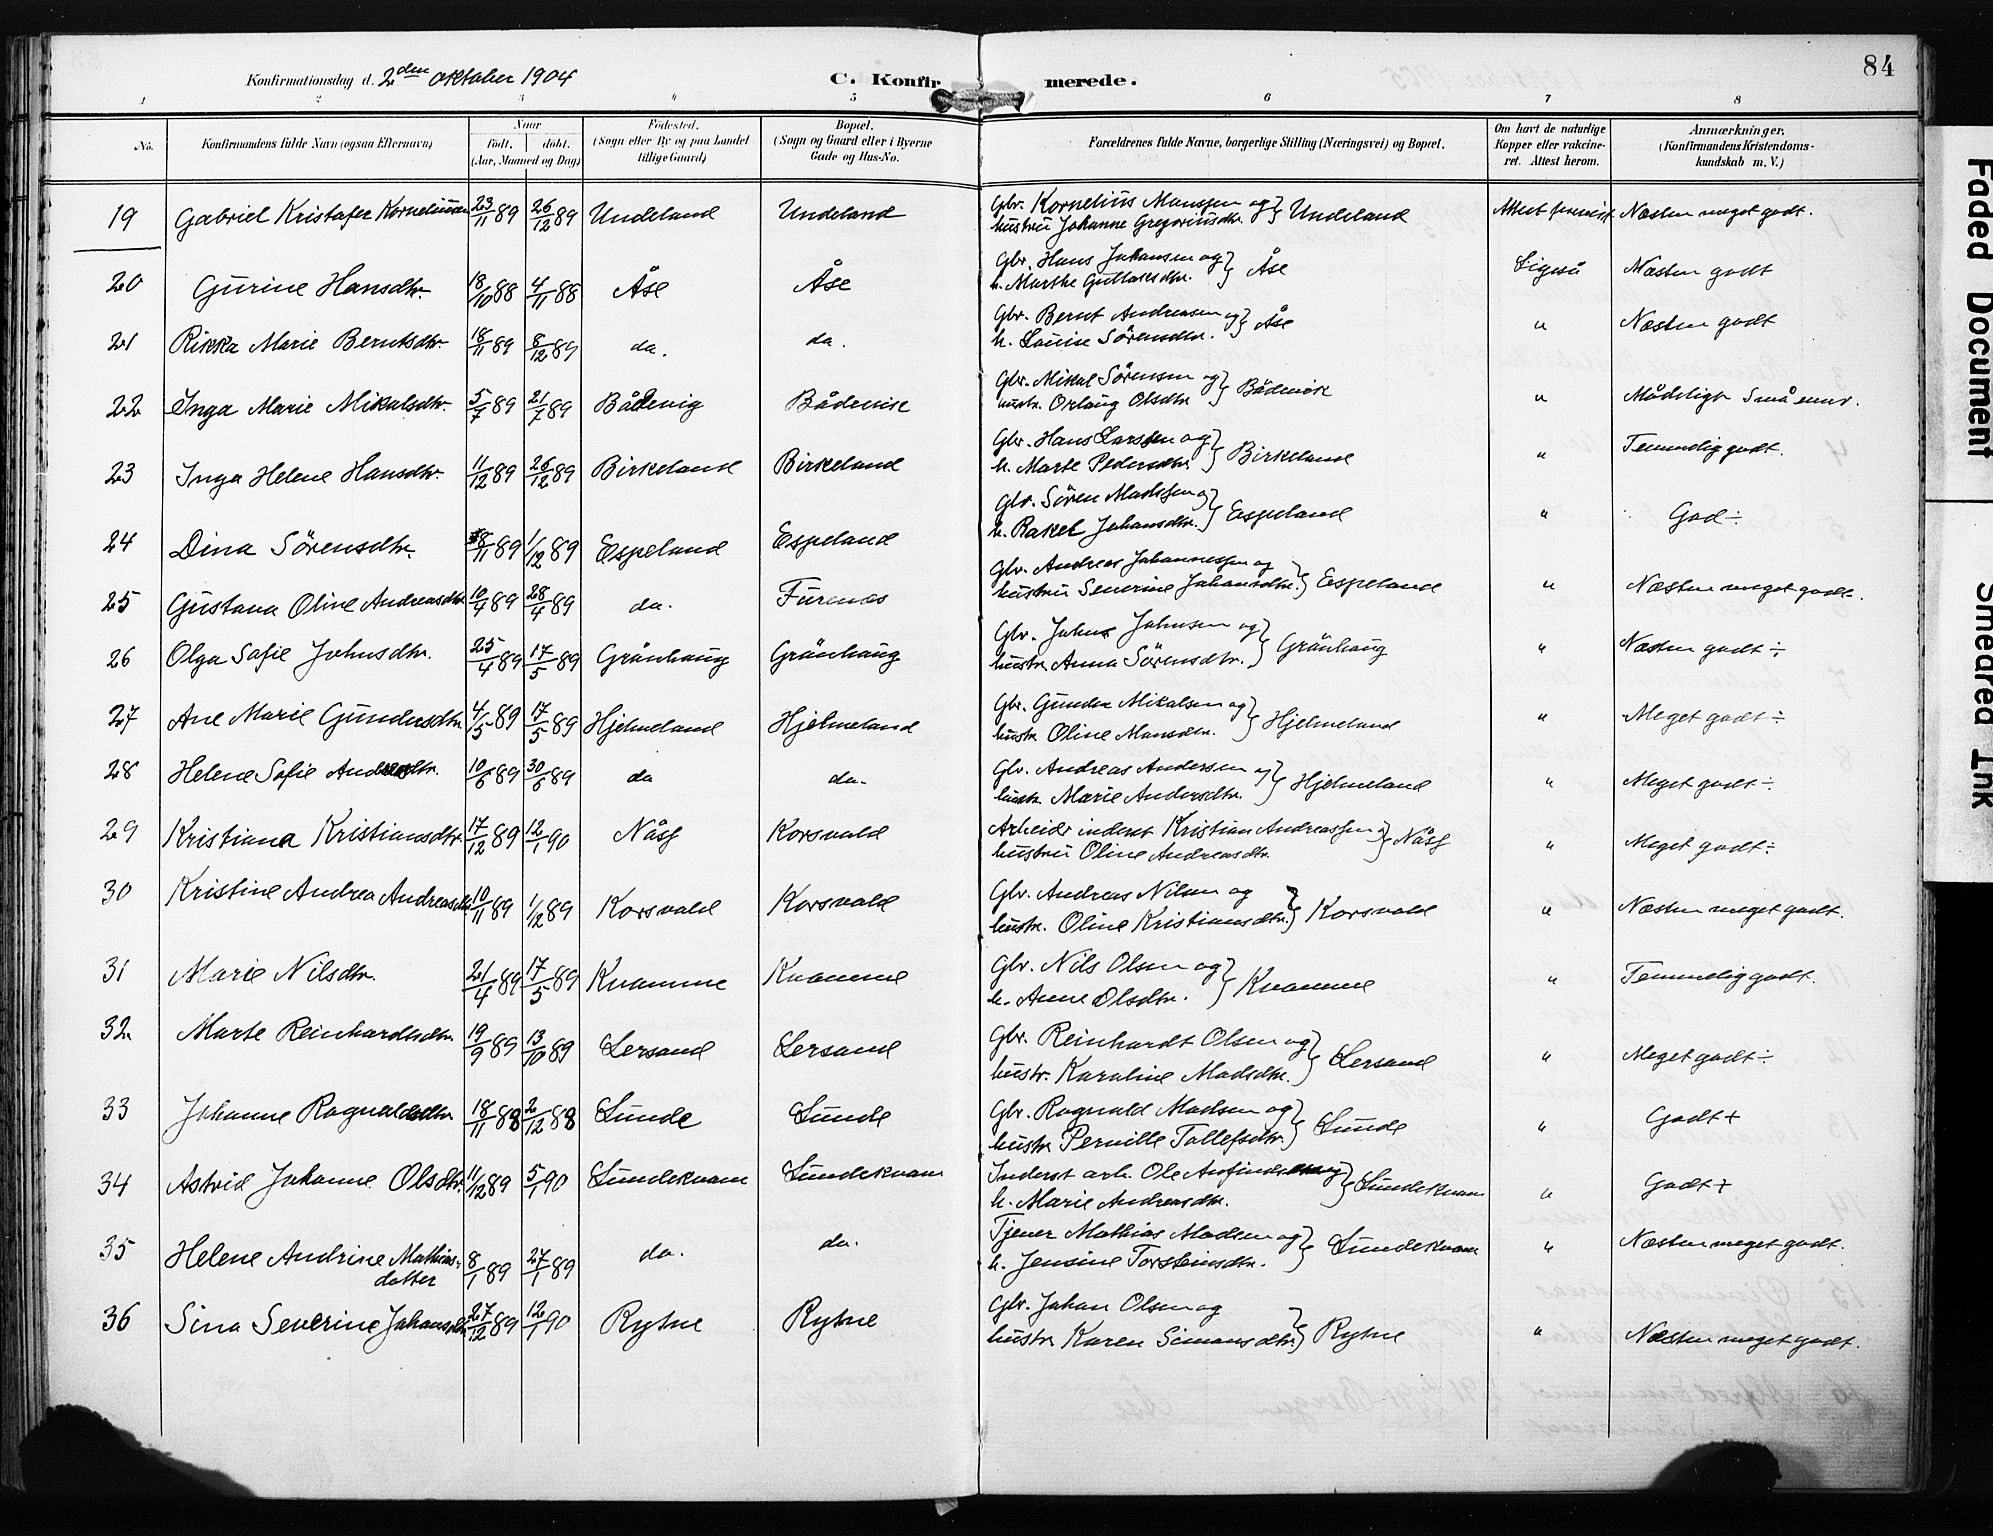 Konfirmationsdag d. 2den oktober 1904
C. Konfirmerede.
84
1 2 3 4 5 6 7 8
No. Konfirmandens fulde Navn (ogsaa Efternavn) Naar født. døbt. (Aar, Maaned og Dag) Fødested. (Sogn eller By og paa Landet tillige Gaard) Bopæl. (Sogn og Gaard eller i Byerne Gade og Hus-No. Forældrenes fulde Navne, borgerlige Stilling (Næringsvei) og Bopæl. Om havt de naturlige Kopper eller vakcineret. Attest herom. Anmærkninger. (Konfirmandens Kristendomskundskab m. V.)
19 Gabriel Kristofer Korneliussen 23/11 89 26/12 89 Undeland Undeland Gbr. Kornelius Monssen og hustru Johanne Gregoriusdtr. } Undeland Attest Næsten meget godt.
20 Gurine Hansdtr. 18/10 88 4/11 88 Åse Åse Gbr. Hans Johansen og h. Marthe Guttormsdtr. } Åse Ligeså Næsten godt
21 Rikka Marie Berntsdtr. 18/11 89 8/12 89 do. do. Gbr. Bernt Andreasen og h. Louise Sörensdtr. } Åse " Næsten godt
22 Inga Marie Mikalsdtr. 5/7 89 21/7 89 Bådevig Bådevik Gbr. Mikal Sörensen og hustr. Orlaug Olsdtr } Bådevik " Mådeligt
23 Inga Helene Hansdtr. 11/12 89 26/12 89 Birkeland Birkeland Gbr. Hans Larssen og h. Marte Pedersdtr. } Birkeland " Temmelig godt.
24 Dina Sörensdtr. 8/11 89 1/12 89 Espeland Espeland Gbr. Sören Madssen og h. Rakel Johansdtr. } Espeland " God ÷
25 Gustava Oline Andreasdtr 10/4 89 28/4 89 do. Furenes Gbr. Andreas Johannessen og hustru Severine Johansdtr. } Espeland " Næsten meget godt.
26 Olga Sofie Johnsdtr. 25/4 89 17/5 89 Grönhaug Grönhaug Gbr. John Johnsen og hustr. Anna Sörensdtr. } Grönhaug " Næsten godt ÷
27 Ane Marie Gundersdtr. 4/5 89 17/5 89 Hjelmeland Hjelmeland Gbr. Gunder Mikalsen og hustr. Oline Monsdtr. } Hjelmeland " Meget godt ÷
28 Helene Sofie Andreasdtr. 10/6 89 30/6 89 do do. Gbr. Andreas Andersen og hustr. Marie Andersdtr. } Hjelmeland " Meget godt ÷
29 Kristiana Kristiansdtr. 17/12 89 12/1 90 Korsvold Arbeidr inderst Kristian Andreassen og hustru Oline Andreasdtr. } " Meget godt ÷
30 Kristine Andrea Andreasdtr 10/11 89 1/12 89 Korsvold Korsvold Gbr. Andreas Nilsen og hustr. Oline Kristiansdtr. } Korsvold " Næsten meget godt.
31 Marie Nilsdtr. 21/4 89 17/5 89 Kvamme Kvamme Gbr. Nils Olsen og h. Anne Olsdtr. } Kvamme " Temmelig godt.
32 Marte Reinhardtsdtr. 19/9 89 13/10 89 Lersand Lersand Gbr. Reinhardt Olsen og hustr. Karoline Madsdtr. } Lersand " Meget godt ÷
33 Johanne Ragnvaldsdtr 18/11 88 2/12 88 Lunde Lunde Gbr. Ragnvald Madsen og hustr. Pernille Tollefsdtr. } Lunde " Godt +
34 Astrid Johanne Olsdtr. 11/12 89 5/1 90 Lundekvam Lundekvam Inderst arb. Ole Anfindsen og h. Marie Andreasdtr. } Lundekvam " Godt +
35 Helene Andrine Mathias-
datter 8/1 89 27/1 89 do. do. Tjener Mathias Madsen og h. Jensine Torsteinsdtr. } Lundekvam " Næsten meget godt.
36 Sina Severine Johansdtr 27/12 89 12/1 90 Rytne Rytne Gbr. Johan Olsen og hustr. Karen Simonsdtr. } Rytne " Næsten meget godt.
Faded Document
Smeared Ink